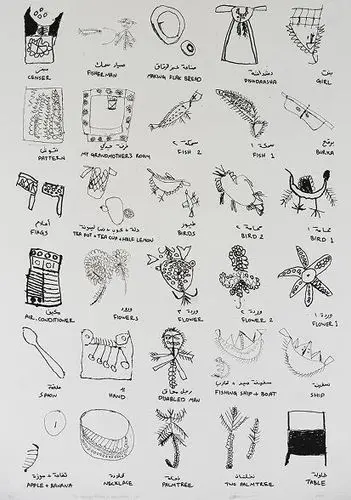 صياد سمك صناعة خبز الرقاق بنت
CENSER FISHERMAN MAKING FLAK BREAD DISHDASHA GIRL
غرفة جدتي سمكة ٢ سمكة ١ برقع
PATTERN MY GRANDMOTHER'S ROOM FISH 2 FISH 1 BURKA
أعلام طيور
FLAGS TEA POT + TEA CUP + ABLE LEMON BIRDS BIRD 2 BIRD 1
مكيف ورود وردة ٣ وردة ٢ وردة ١
AIR. CONDITIONER FLOWERS FLOWER FLOWER 2 FLOWER 1
ملعقة يد رجل معاق سفينة صيد + قارب سفينة
SPOON HAND DISABLED MAN FISHING SHIP + BOAT SHIP
تفاحة + موزة قلادة نخلة نخلتان طاولة
APPLE + BANANA NECKLACE PALMTREE TWO PALMTREE TABLE